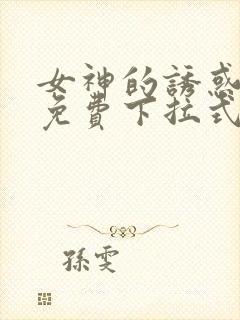 女神的誘惑
免費下拉式
孫雯